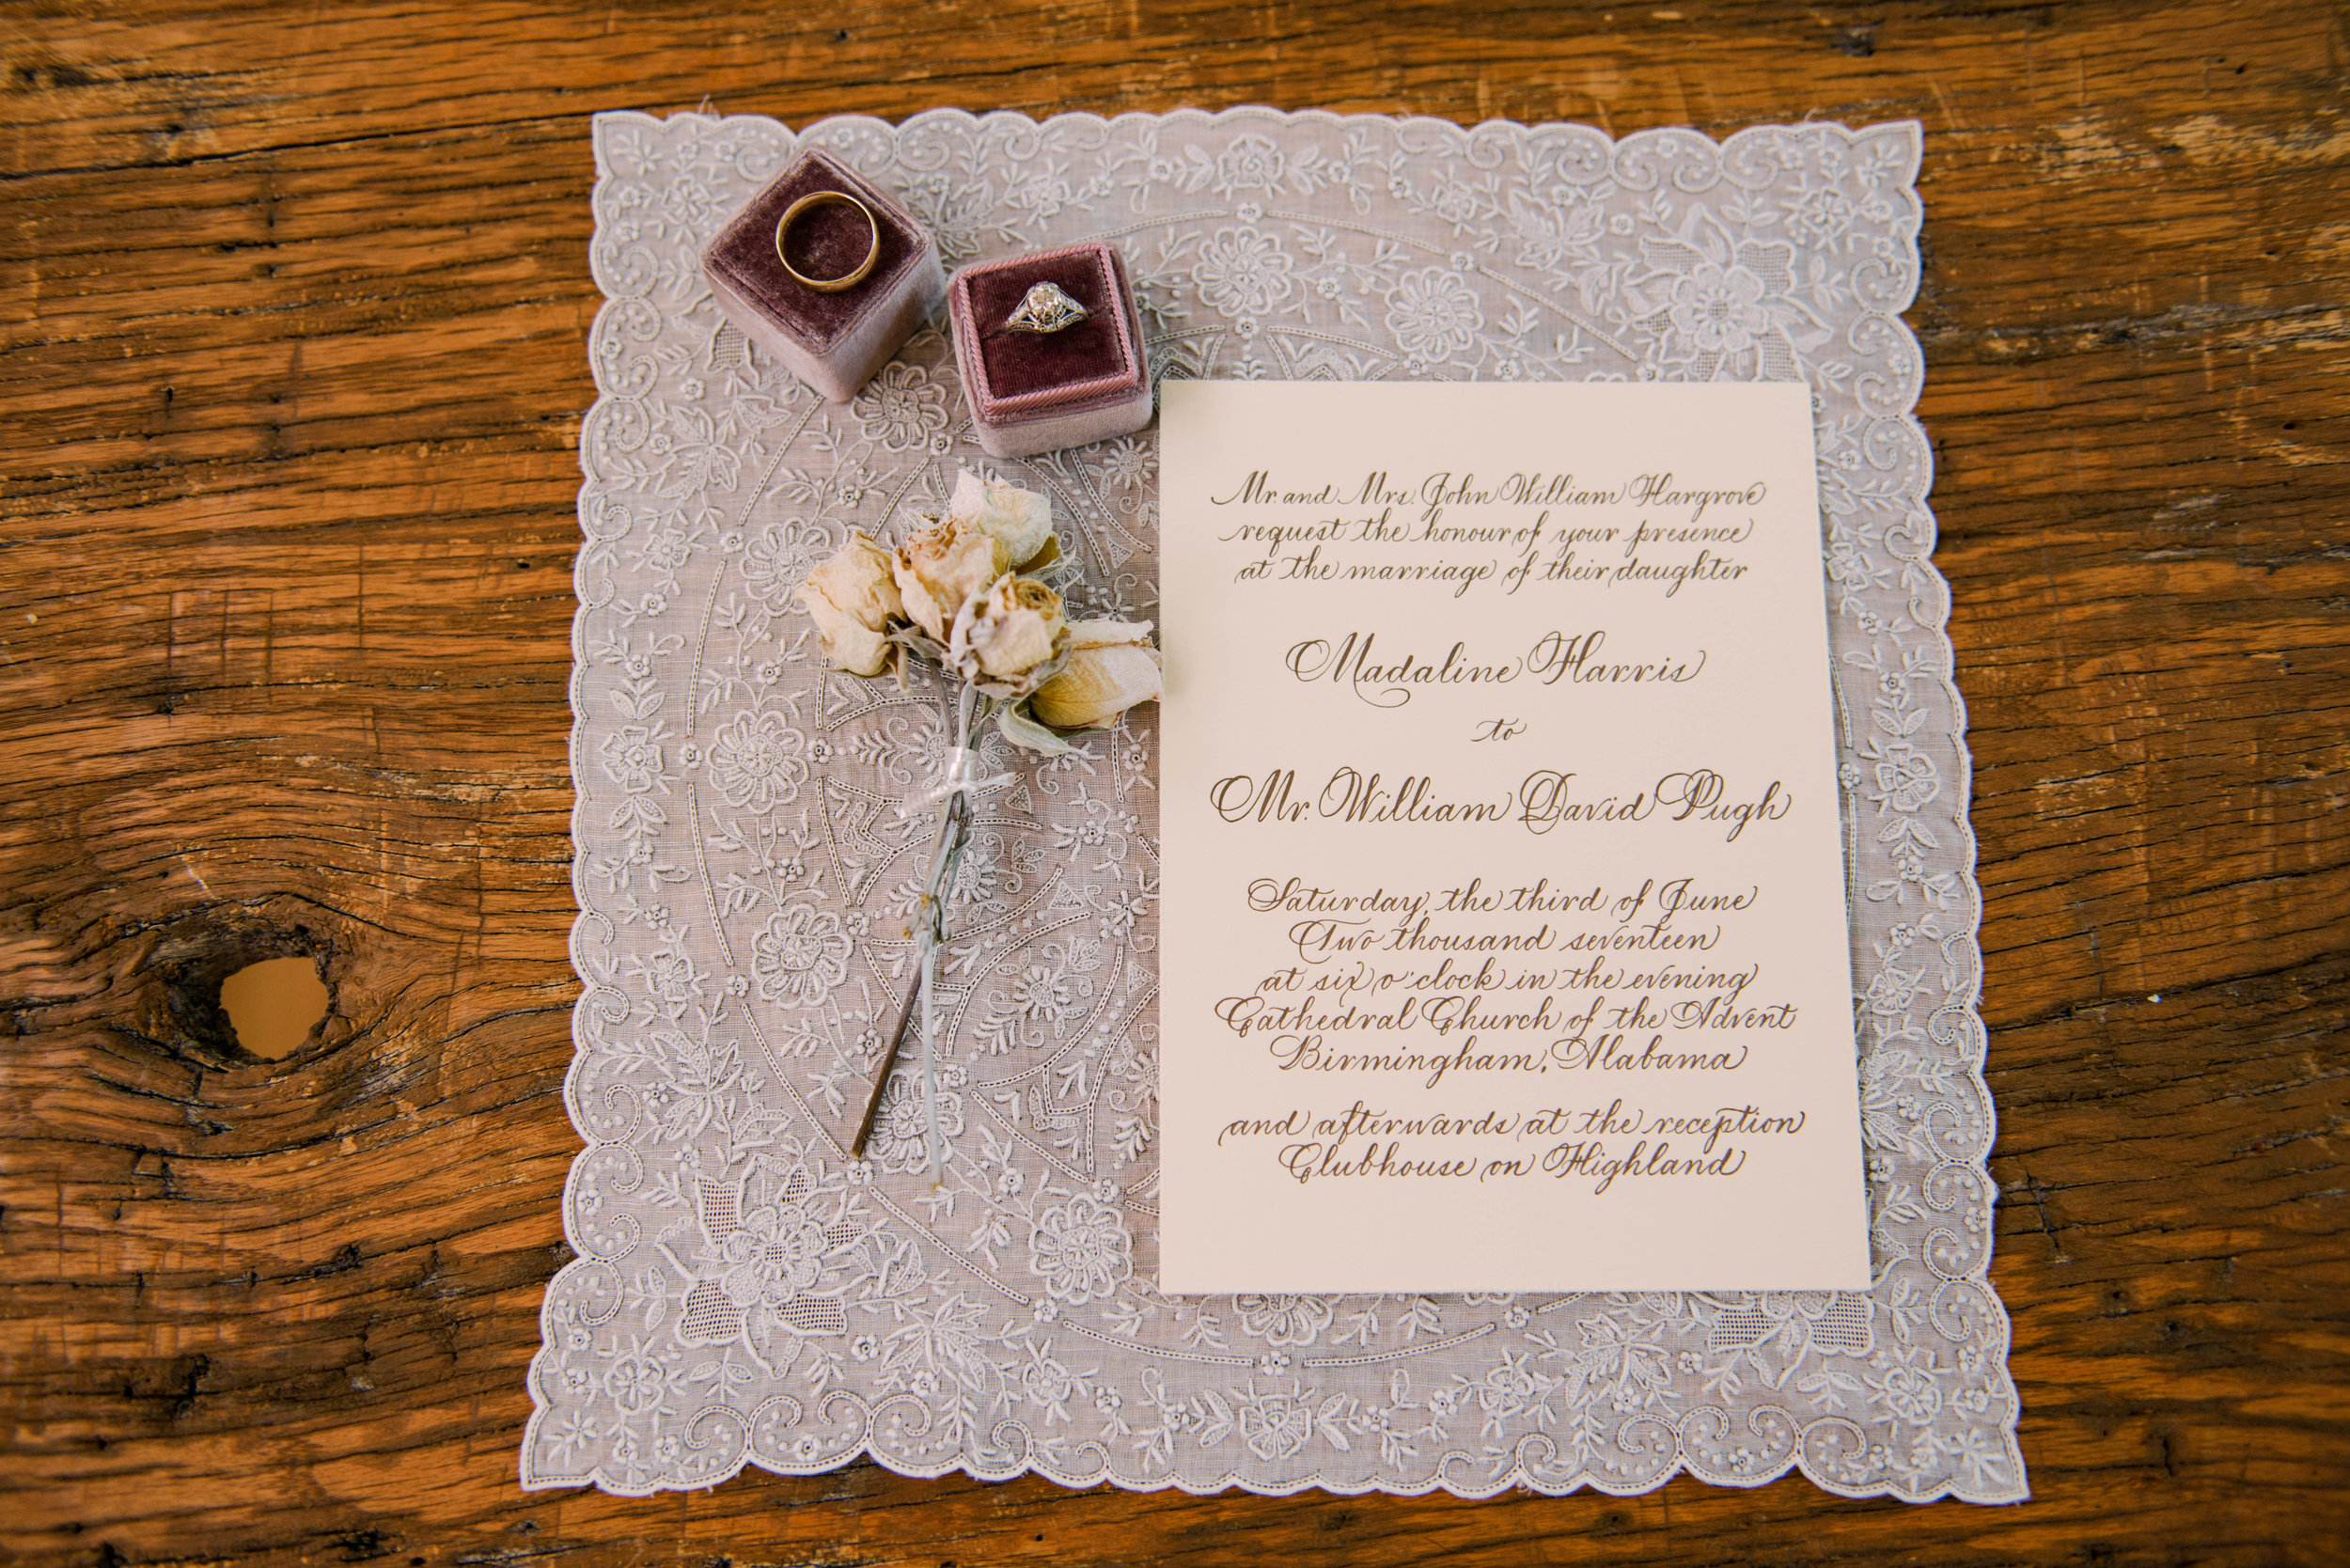 Mr. and Mrs. John William Hargrove
request the honour of your presence
at the marriage of their daughter
Madaline Harris
to
Mr. William David Pugh
Saturday, the third of June
Two thousand seventeen
at six o'clock in the evening
Cathedral Church of the Advent
Birmingham, Alabama
and afterwards at the reception
Clubhouse on Highland